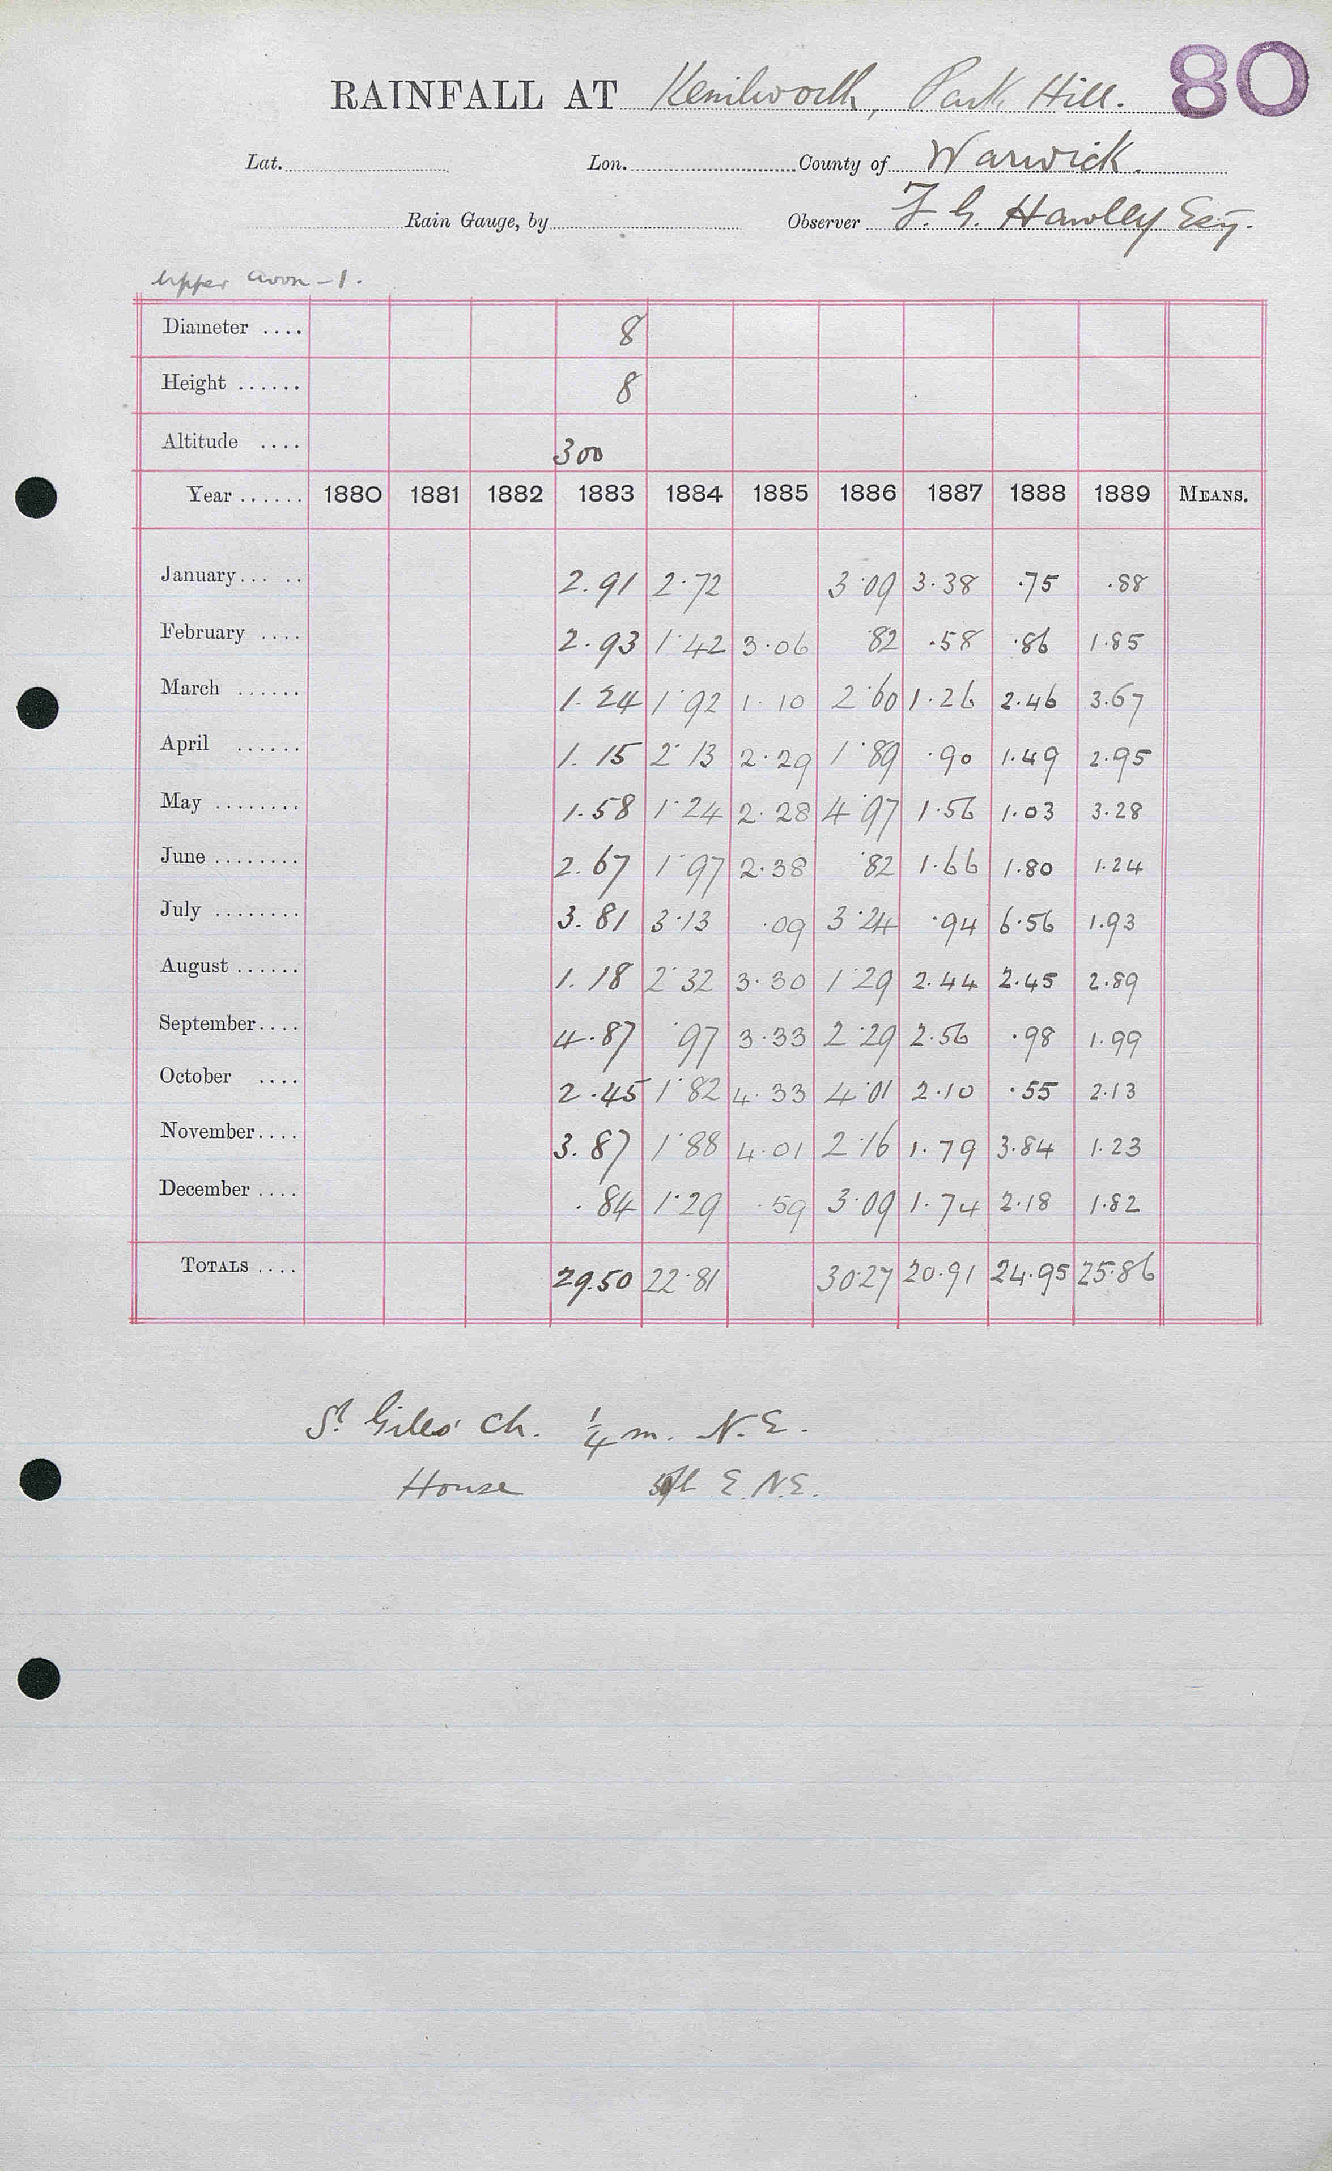 RAINFALL AT Kenilworth, Park Hill. 80
Lat. Lon. County of Warwick.
Rain Gauge, by Observer F. G. Hawley Esq.
Upper Avon - 1.
Diameter .... 8
Height ...... 8
Altitude .... 300
Year ...... 1880 1881 1882 1883 1884 1885 1886 1887 1888 1889 MEANS.
January ... .. 2.91 2.72 3.09 3.38 .75 .88
February .... 2.93 1.42 3.06 .82 .58 .86 1.85
March ...... 1.24 1.92 1.10 2.60 1.26 2.46 3.67
April ...... 1.15 2.13 2.29 1.89 .90 1.49 2.95
May ........ 1.58 1.24 2.28 4.97 1.56 1.03 3.28
June ........ 2.67 1.97 2.38 .82 1.66 1.80 1.24
July ........ 3.81 3.13 .09 3.24 .94 6.56 1.93
August ...... 1.18 2.32 3.30 1.29 2.44 2.45 2.89
September .... 4.87 .97 3.33 2.29 2.56 .98 1.99
October .... 2.45 1.82 4.33 4.01 2.10 .55 2.13
November .... 3.87 1.88 4.01 2.16 1.79 3.84 1.23
December .... .84 1.29 .59 3.09 1.74 2.18 1.82
TOTALS .... 29.50 22.81 30.27 20.91 24.95 25.86
St Giles' Ch. 1/4 m. N.E.
House E.N.E.